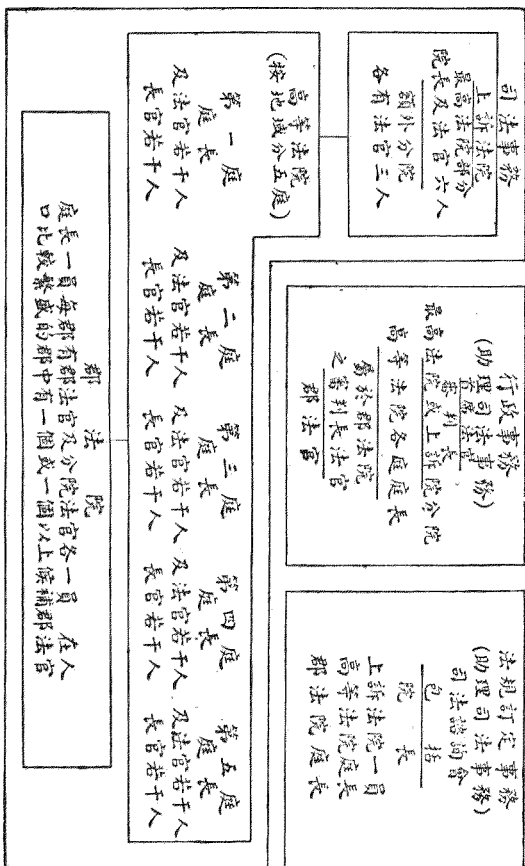 司法事務
上訴法院
最高法院部分
院長及法官六人
額外分院
各有法官三人
高等法院
(按地域分五庭)
第一庭
庭長
及法官若干人
長官若干人
第二庭
庭長
及法官若干人
長官若干人
第三庭
庭長
及法官若干人
長官若干人
第四庭
庭長
及法官若干人
長官若干人
第五庭
庭長
及法官若干人
長官若干人
郡法院
庭長一員每郡有郡法官及分院法官各一員 在人
口比較繁盛的郡中有一個或一個以上候補郡法官
行政事務
(助理司法事務)
首席法官
審判長
最高法院或上訴院分院
高等法院各庭庭長
屬於郡法院
之審判長法官
郡法官
法規訂定事務
(助理司法事務)
司法諮詢會
包括
院長
上訴法院一員
高等法院庭長
郡法院庭長